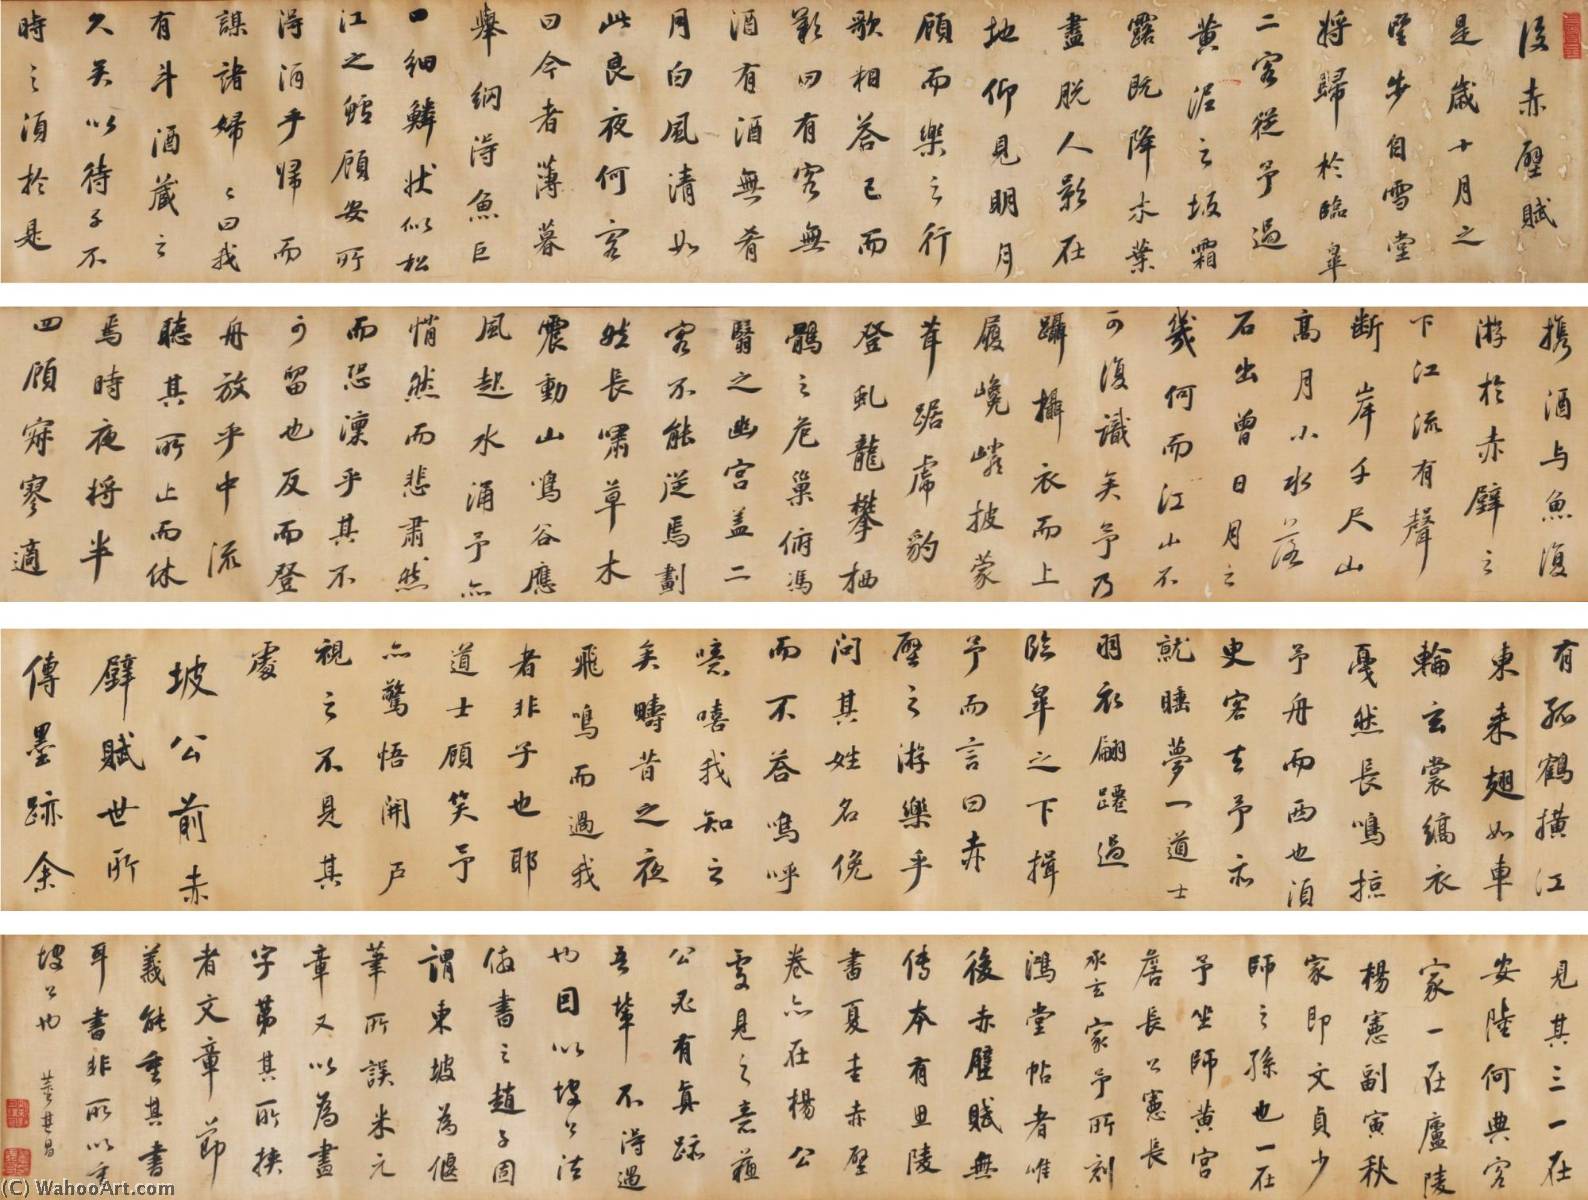 後赤壁賦
是歲十月之
望步自雪堂
將歸於臨皋
二客從予過
黃泥之坂霜
露既降木葉
盡脱人影在
地仰見明月
顧而樂之行
歌相答已而
歎曰有客無
酒有酒無肴
月白風清如
此良夜何客
曰今者薄暮
舉網得魚巨
口細鱗狀似松
江之鱸顧安所
得酒乎歸而
謀諸婦婦曰我
有斗酒藏之
久矣以待子不
時之須於是
携酒與魚復
游於赤壁之
下江流有聲
斷岸千尺山
高月小水落
石出曾日月之
幾何而江山不
可復識矣予乃
躡攝衣而上
履巉巖披蒙
茸踞虎豹
登虬龍攀栖
鶻之危巢俯馮
翳之幽宮蓋二
客不能從焉劃
然長嘯草木
震動山鳴谷應
風起水涌予亦
悄然而悲肅然
而恐凜乎其不
可留也反而登
舟放乎中流
聽其所止而休
焉時夜將半
四顧寂寥適
有孤鶴橫江
東來翅如車
輪玄裳縞衣
戛然長鳴掠
予舟而西也須
臾客去予亦
就睡夢一道士
羽衣翩躚過
臨皋之下揖
予而言曰赤
壁之游樂乎
問其姓名俛
而不答嗚呼
噫嘻我知之
矣疇昔之夜
飛鳴而過我
者非子也耶
道士顧笑予
亦驚悟開戶
視之不見其
處
坡公前赤
壁賦世所
傳墨跡余
見其三一在
安陸何典客
家一在廬陵
楊憲副寅秋
家即文貞少
師之孫也一在
予坐師黃宮
詹長公憲長
承玄家予所刻
鴻堂帖者唯
後赤壁賦無
傳本有且陵
書夏圭赤壁
卷亦在楊公
處見之意蘇
公不有真跡
吾輩不得過
也因以坡公法
倣書之趙子固
謂東坡為偃
筆所誤米元
章又以為畫
字第其所挾
者文章節
義能重其書
耳書非所以重
坡公也
董其昌
(C) WahooArt.com